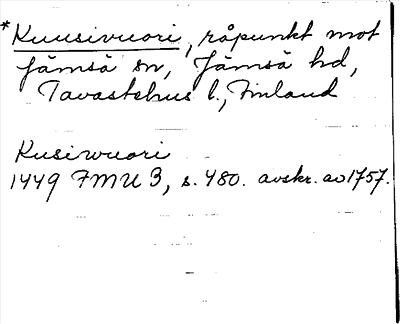 *Kuusivuori, råpunkt mot
Jämsä sn, Jämsä hd,
Tavastehus l., Finland
Kusiwuori
1449 FMU 3, s. 480. avskr. av 1757.